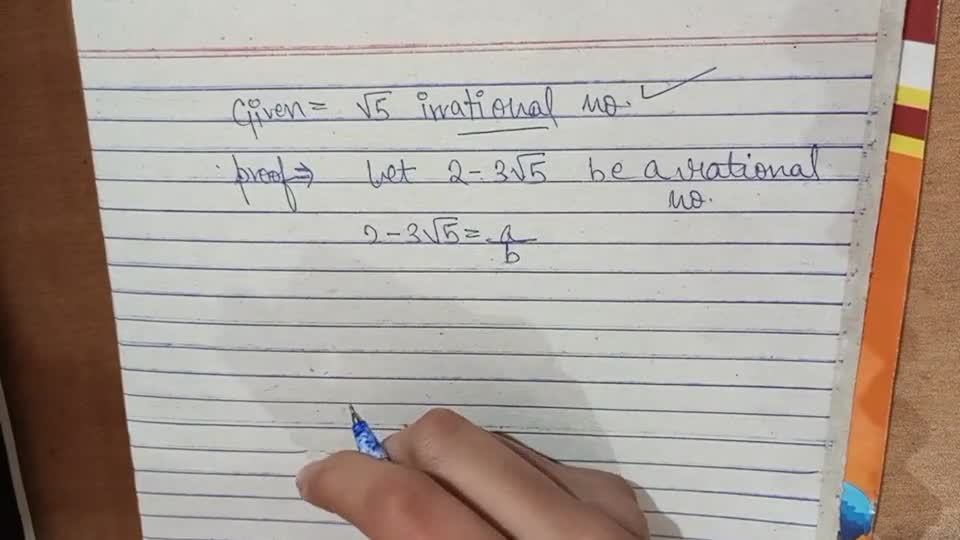 Given = √5 irrational no. ✓
proof ⇒ Let 2 - 3√5 be a rational
no.
2 - 3√5 = a/b